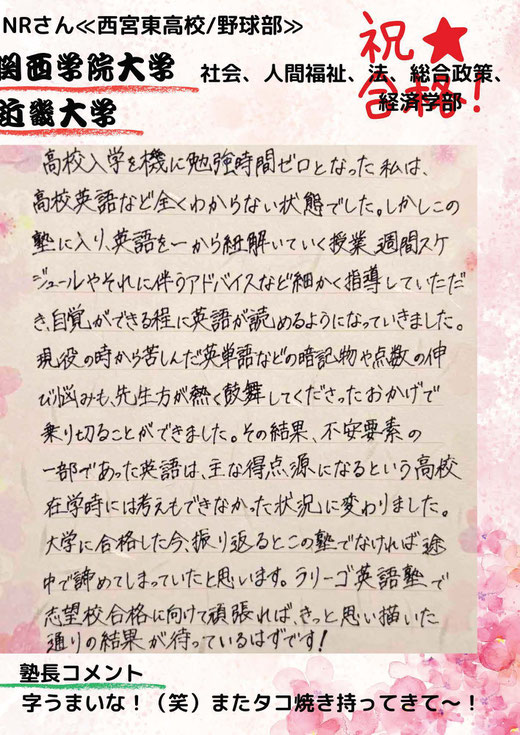 NRさん≪西宮東高校/野球部≫
関西学院大学
社会、人間福祉、法、総合政策、
経済学部
祝★
合格！
近畿大学
高校入学を機に勉強時間ゼロとなった私は、
高校英語など全くわからない状態でした。しかしこの
塾に入り、英語を一から紐解いていく授業、週間スケ
ジュールやそれに伴うアドバイスなど細かく指導していただ
き、自覚ができる程に英語が読めるようになっていきました。
現役の時から苦しんだ英単語などの暗記物や点数の伸
び悩みも、先生方が熱く鼓舞してくださったおかげで
乗り切ることができました。その結果、不安要素の
一部であった英語は、主な得点源になるという高校
在学時には考えもできなかった状況に変わりました。
大学に合格した今、振り返るとこの塾でなければ途
中で諦めてしまっていたと思います。ラリーゴ英語塾で
志望校合格に向けて頑張れば、きっと思い描いた
通りの結果が待っているはずです!
塾長コメント
字うまいな！（笑）またタコ焼き持ってきて〜！